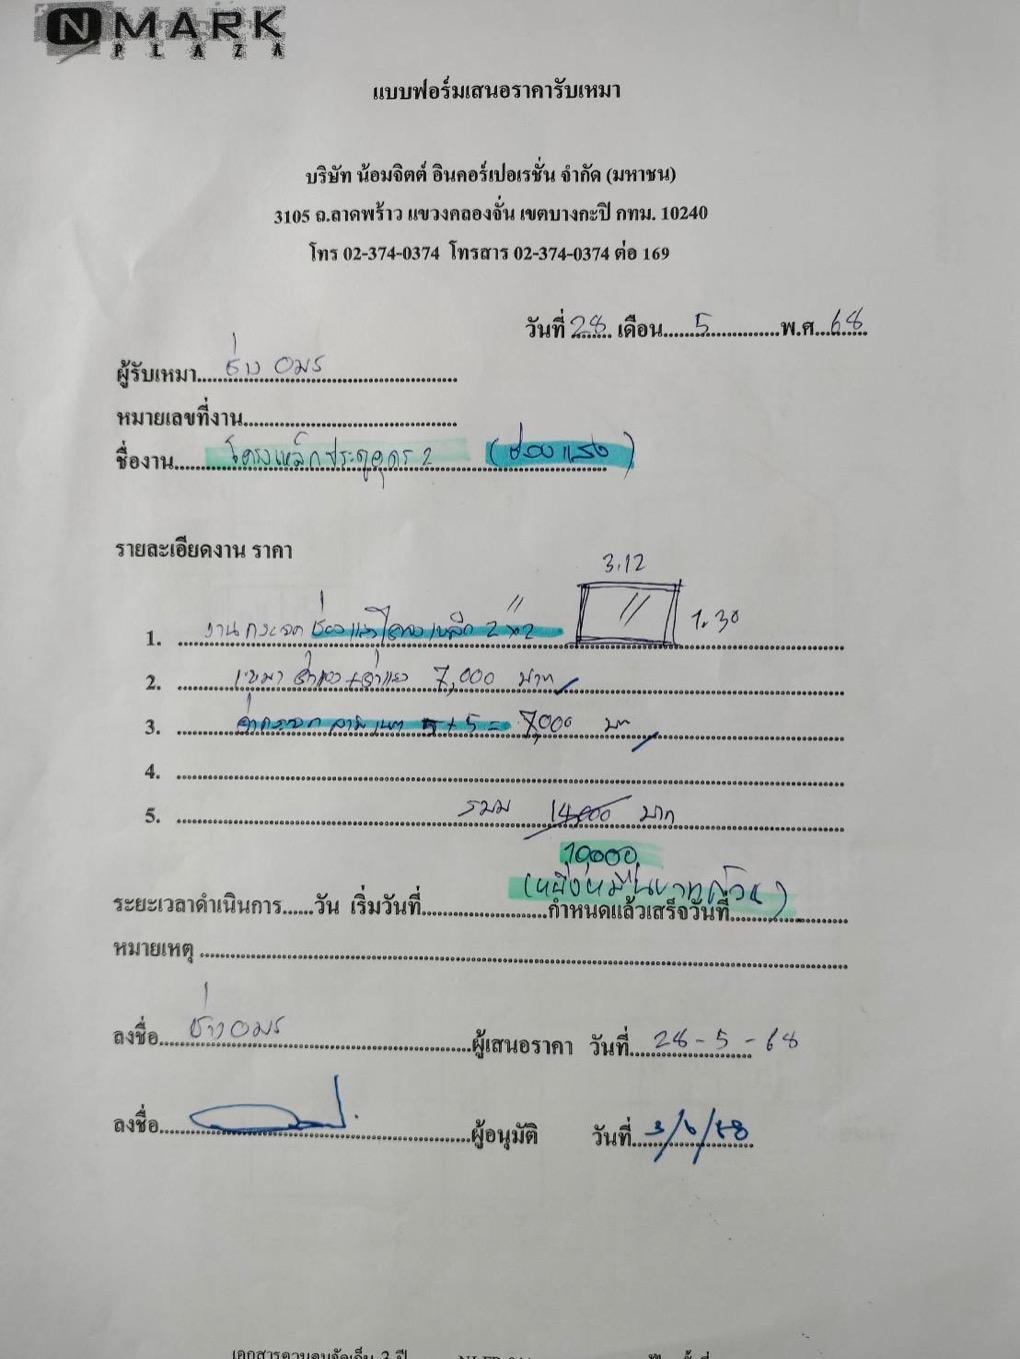 N MARK
PLAZA
แบบฟอร์มเสนอราคารับเหมา
บริษัท น้อมจิตต์ อินคอร์เปอเรชั่น จำกัด (มหาชน)
3105 ถ.ลาดพร้าว แขวงคลองจั่น เขตบางกะปิ กทม. 10240
โทร 02-374-0374 โทรสาร 02-374-0374 ต่อ 169
วันที่ 28 เดือน 5 พ.ศ. 68
ผู้รับเหมา ช่าง อมร
หมายเลขที่งาน
ชื่องาน โครงเหล็กประตูอุดร 2 (ช่องแสง)
รายละเอียดงาน ราคา
3.12
1.30
1. งานกระจก ช่องแสงโครงเหล็ก 2"x2
2. เหมา 7,000 บาท
3. ค่ากระจก ลามิเนต 5+5 = 7,000 บาท
4.
5. รวม 14,000 บาท
10,000
(หนึ่งหมื่นบาทถ้วน)
ระยะเวลาดำเนินการ......วัน เริ่มวันที่ กำหนดแล้วเสร็จวันที่
หมายเหตุ
ลงชื่อ ช่างอมร ผู้เสนอราคา วันที่ 28-5-68
ลงชื่อ ผู้อนุมัติ วันที่ 3/6/68
เอกสารควบคุมจัดเก็บ 3 ปี